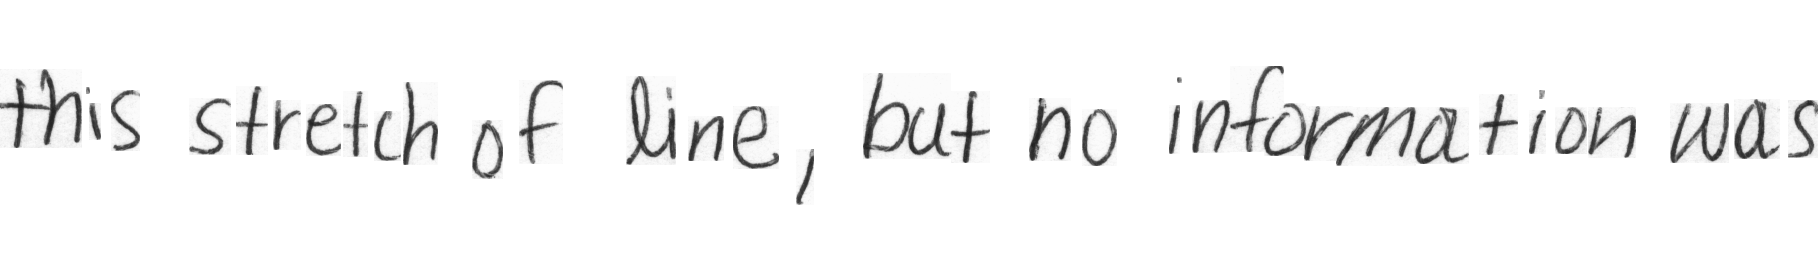 this stretch of line, but no information was